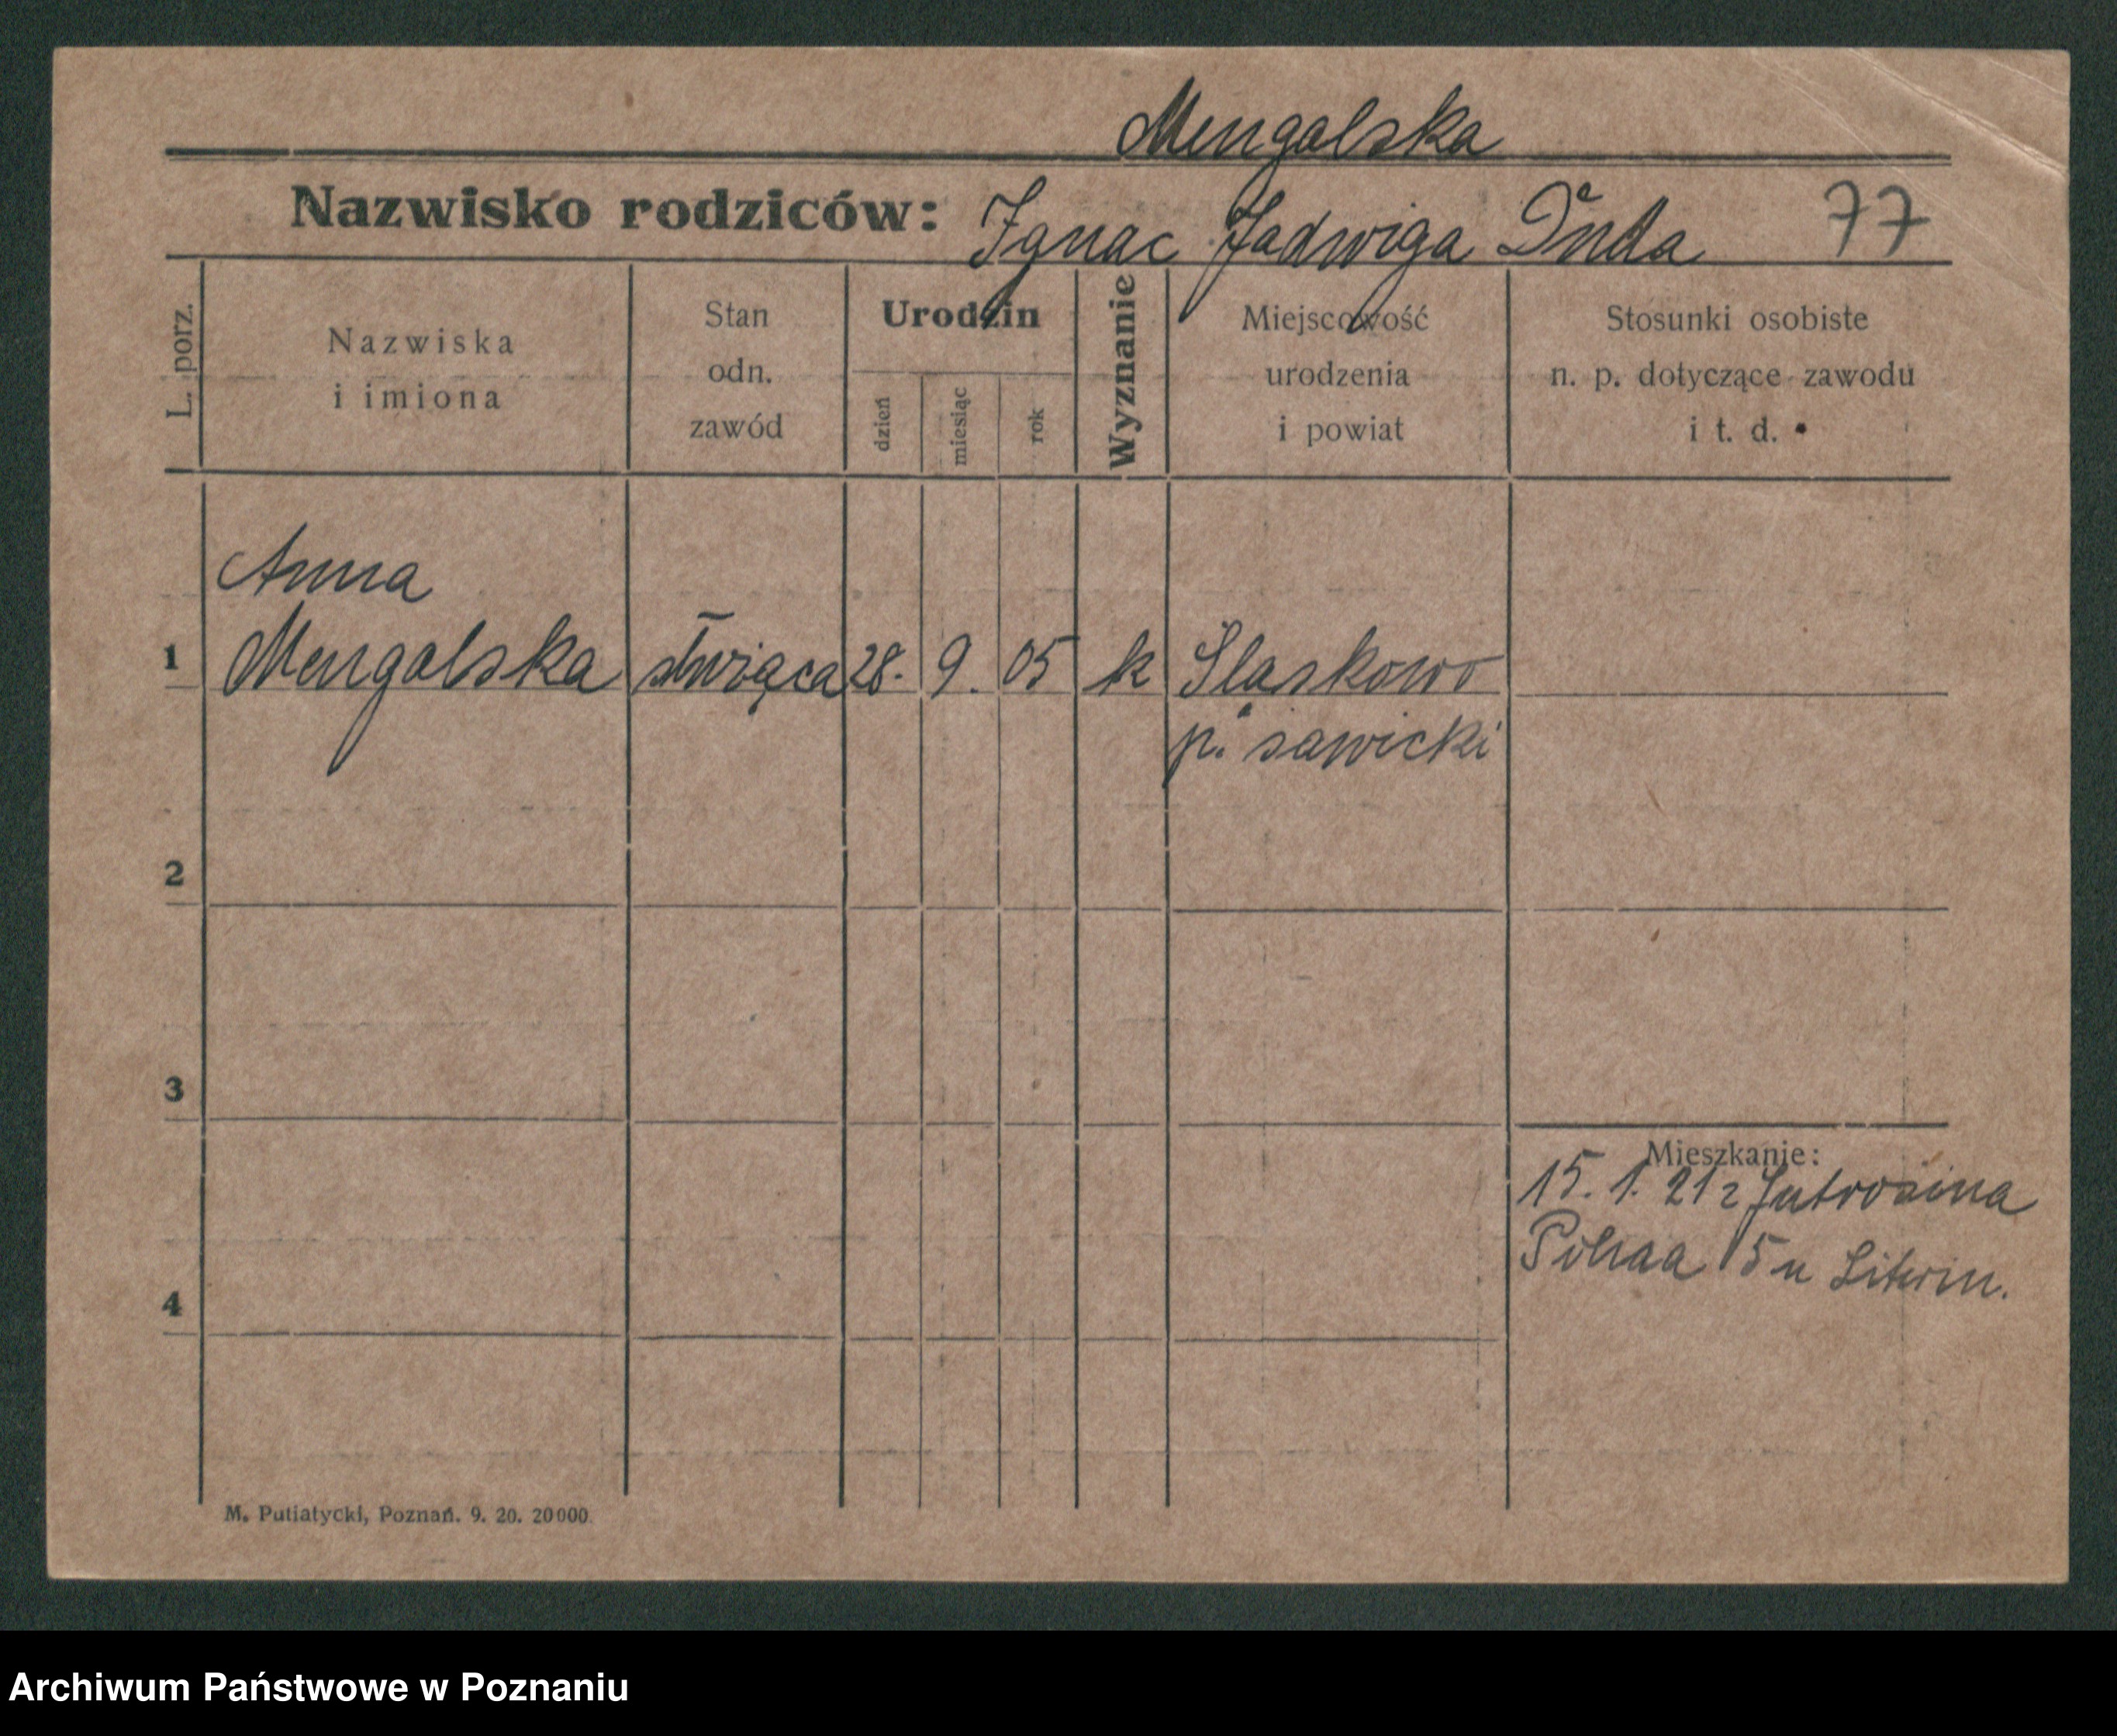 Mengalska
Nazwisko rodziców: Ignac Jadwiga Duda 77
L. porz.
Nazwiska
i imiona
Stan
odn.
zawód
Urodzin
dzień
miesiąc
rok
Wyznanie
Miejscowość
urodzenia
i powiat
Stosunki osobiste
n. p. dotyczące zawodu
i t. d.
Anna
1 Mengalska służąca 28. 9. 05 k Slaskowo
p. sawicki
2
3
Mieszkanie:
15. 1. 21 z Jutrosina
15 u Litwin.
4
M. Putiatycki, Poznań. 9. 20. 20000.
Archiwum Państwowe w Poznaniu